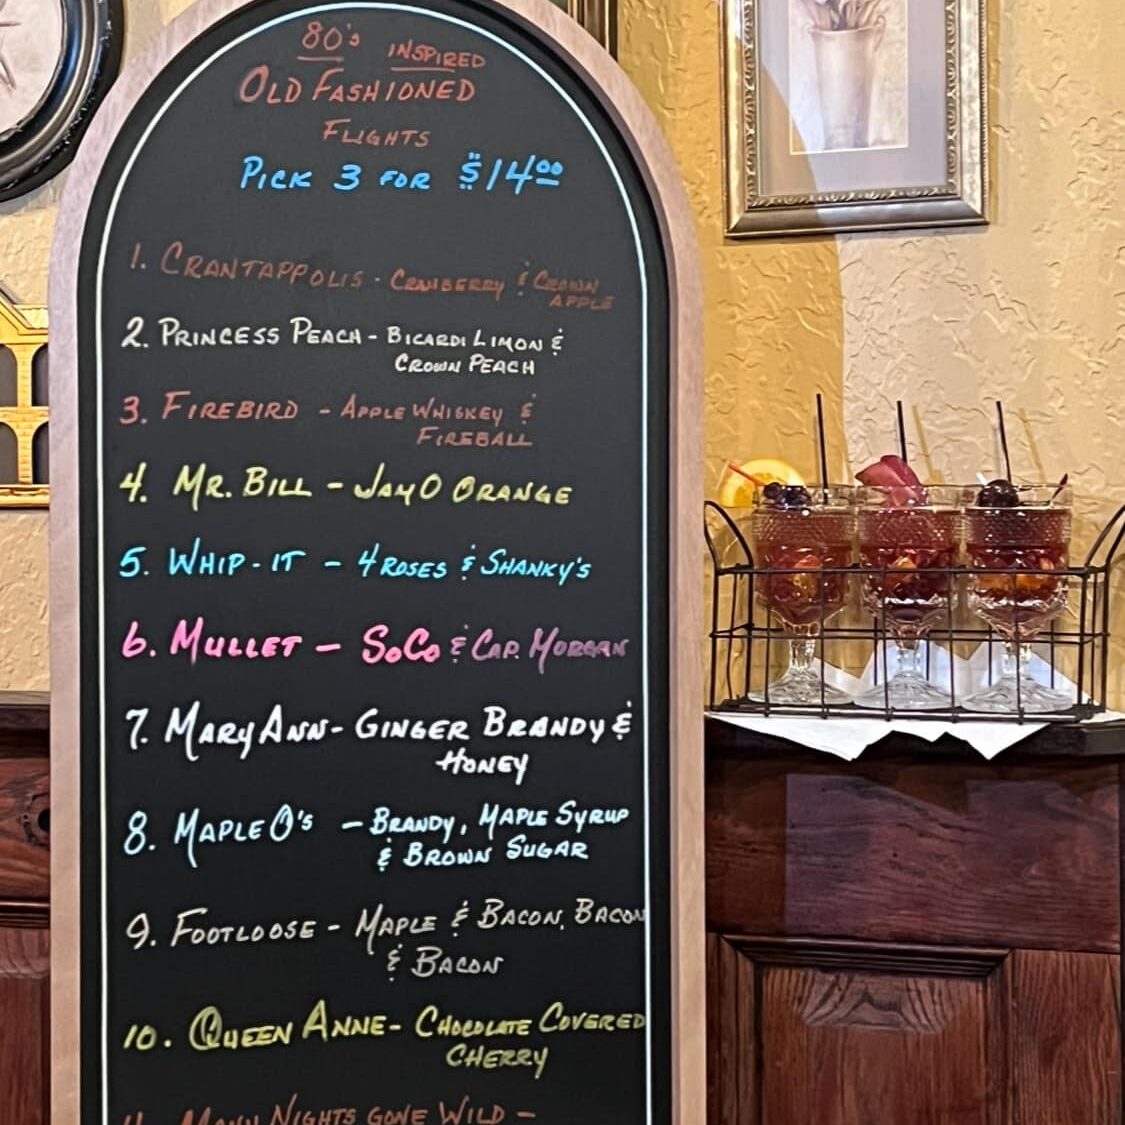 80's INSPIRED
OLD FASHIONED
FLIGHTS
PICK 3 FOR $14.00
1. CRANTAPPOLIS - CRANBERRY & CROWN
APPLE
2. PRINCESS PEACH - BICARDI LIMON &
CROWN PEACH
3. FIREBIRD - APPLE WHISKEY &
FIREBALL
4. MR. BILL - JAMO ORANGE
5. WHIP-IT - 4 ROSES & SHANKY'S
6. MULLET - SOCO & CAP. MORGAN
7. MARY ANN - GINGER BRANDY &
HONEY
8. MAPLE O'S - BRANDY, MAPLE SYRUP
& BROWN SUGAR
9. FOOTLOOSE - MAPLE & BACON, BACON
& BACON
10. QUEEN ANNE - CHOCOLATE COVERED
CHERRY
NIGHTS GONE WILD -